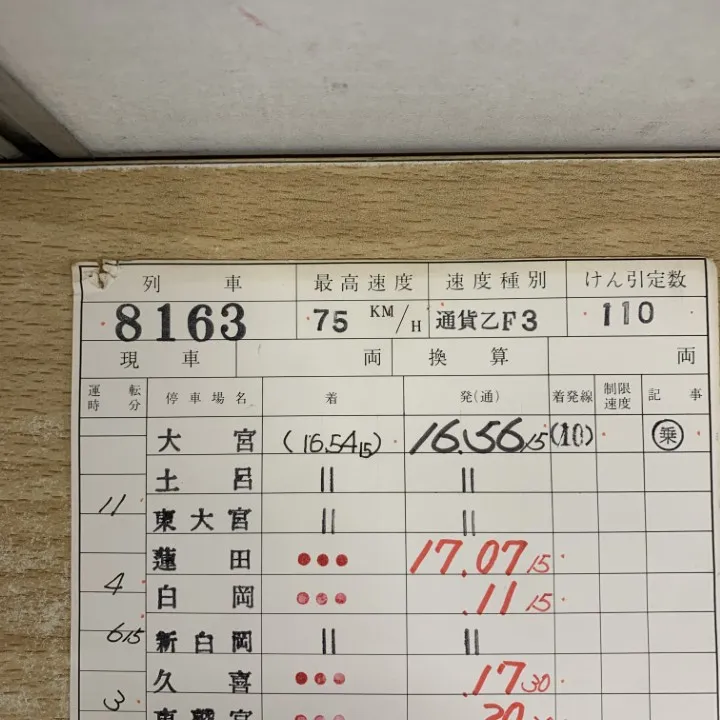 列車 最高速度 速度種別 けん引定数
8163 75 KM/H 通貨乙F3 110
現車 両 換算 両
運転時分 停車場名 着 発(通) 着発線 制限速度 記事
大宮 (16.54 15) 16.56 15 (10) 乗
土呂 || ||
11
東大宮 || ||
蓮田 ●●● 17.07 15
4
白岡 ●●● .11 15
6 15
新白岡 || ||
久喜 ●●● .17 30
3
東鷲宮